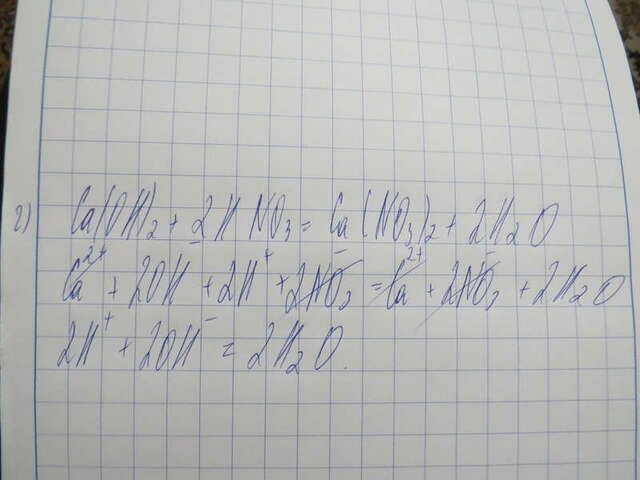 г) Ca(OH)₂ + 2HNO₃ = Ca(NO₃)₂ + 2H₂O
Ca²⁺ + 2OH⁻ + 2H⁺ + 2NO₃⁻ = Ca²⁺ + 2NO₃⁻ + 2H₂O
2H⁺ + 2OH⁻ = 2H₂O.